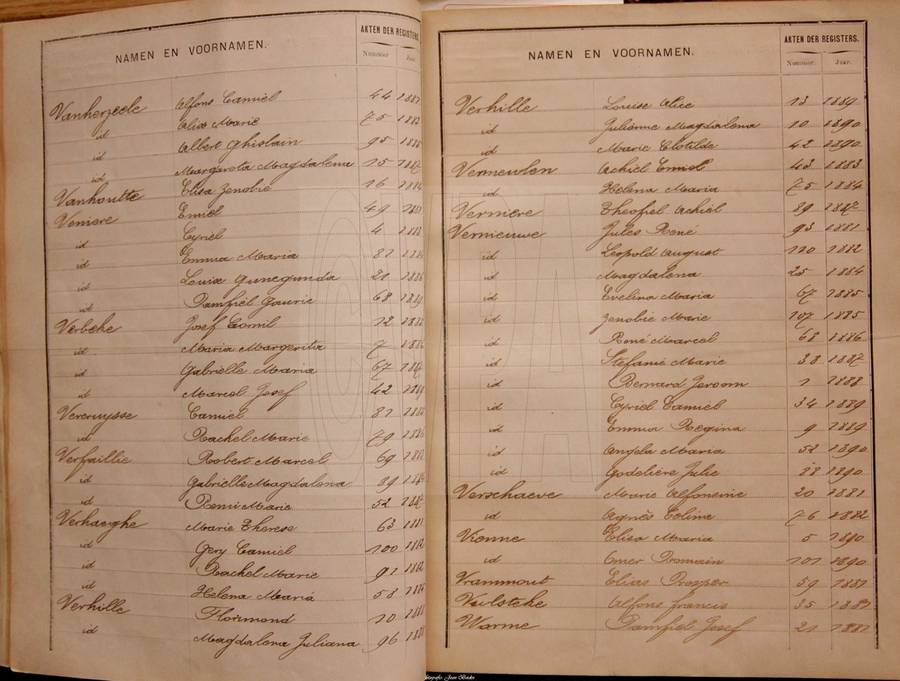 NAMEN EN VOORNAMEN.
AKTEN DER REGISTERS.
Nummer Jaar
Vanherzeele Alfons Camiel 44 1881
id Alice Marie 75 1882
id Albert Ghislain 95
id Margareta Magdalena 15
Vanhoutte Elisa Zenobie 16
Veniere Emiel 49
id Cyriel 4
id Emma Maria 81
id Louise Cunegunda 21 1886
id Pamfiel Gaurie 68 1889
Verbeke Josef Camil 12
id Maria Margerita 7
id Gabrielle Maria 67
id Marcel Josef 42
Vercruysse Camiel 81
id Rachel Marie 79
Verfaillie Robert Marcel 69
id Gabrielle Magdalena 89
id Remi Marie 52
Verhaeghe Marie Therese 63 1881
id Gery Camiel 100 1882
id Rachel Marie 91
id Helena Maria 58
Verhille Florimond 10
id Magdalena Juliana 96
NAMEN EN VOORNAMEN.
AKTEN DER REGISTERS.
Nummer. Jaar.
Verhille Louise Alice 13 1889
id Julienne Magdalena 10 1890
id Marie Clotilde 42 1890
Vermeulen Achiel Emiel 43 1883
id Helena Maria 75 1884
Verniere Theofiel Achiel 89 1887
Vernieuwe Jules René 93 1881
id Leopold August 110 1882
id Magdalena 25 1884
id Evelina Maria 67 1885
id Zenobie Marie 107 1885
id René Marcel 68 1886
id Stefanie Marie 38 1887
id Bernard Jeroom 1 1888
id Cyriel Camiel 34 1889
id Emma Regina 9 1889
id Angela Maria 52 1890
id Godelieve Julie 88 1890
Verschaeve Marie Alfonsine 20 1881
id Agnès Celine 76 1882
Vienne Elisa Maria 5 1890
id Omer Romain 101 1890
Vrammout Elias Prosper 59 1881
Vuilsteke Alfons Francis 35 1881
Warme Pamfiel Josef 21 1881